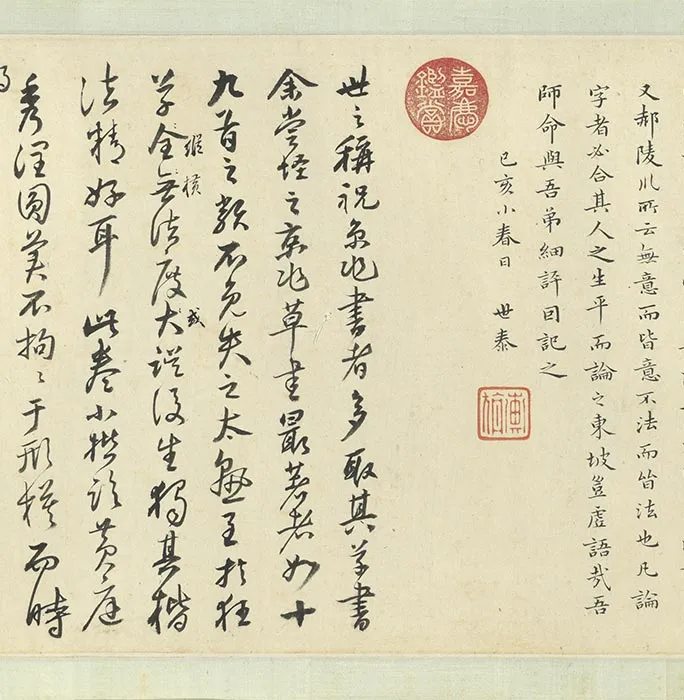 又郝陵川所云無意而皆意不法而皆法也凡論
字者必合其人之生平而論之東坡豈虛語哉吾
師命與吾弟細評因記之
己亥小春日 世泰
嘉慶鑑賞
世之稱祝京兆書者多取其草書
余嘗怪之京兆草書最著者如十
九首之類不免失之太至於狂
草縱橫全無法度或大誤後生獨其楷
法精好耳此卷小楷黃庭
秀潤圓美不拘〻于形模而時